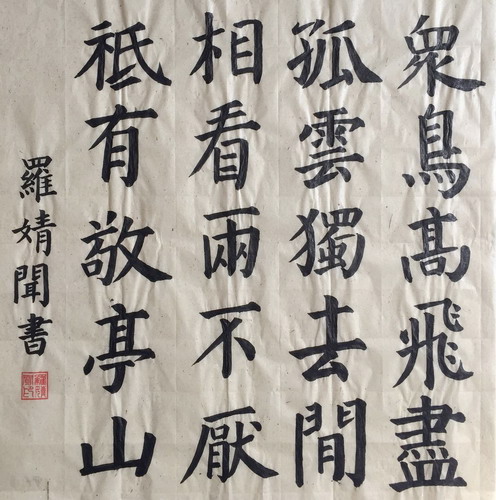 眾鳥高飛盡
孤雲獨去閒
相看兩不厭
祗有敬亭山
羅婧聞書